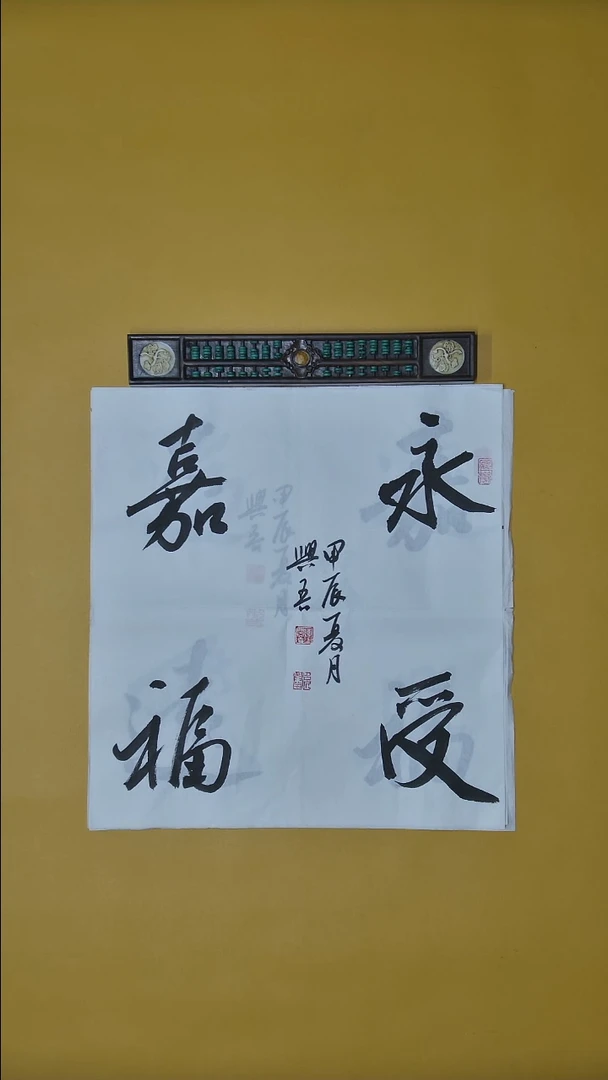 永受
嘉福
甲辰夏月
興吾